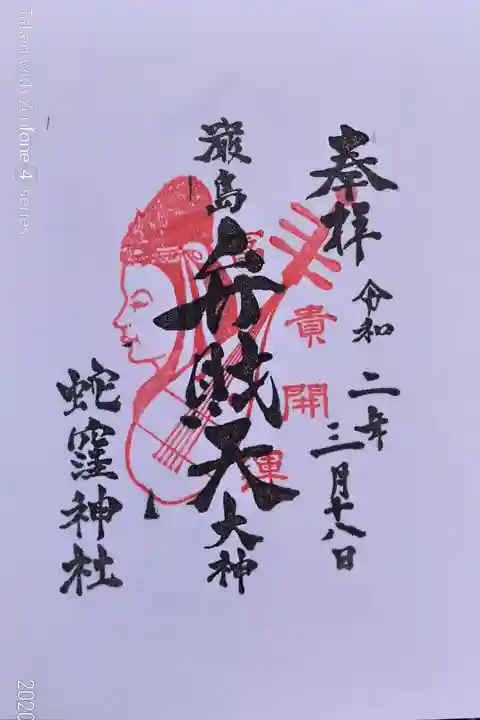 奉拝
令和二年
三月十八日
厳島
弁財天
大神
蛇窪神社
貴
開
運
Taken with Zenfone 4 series
2020